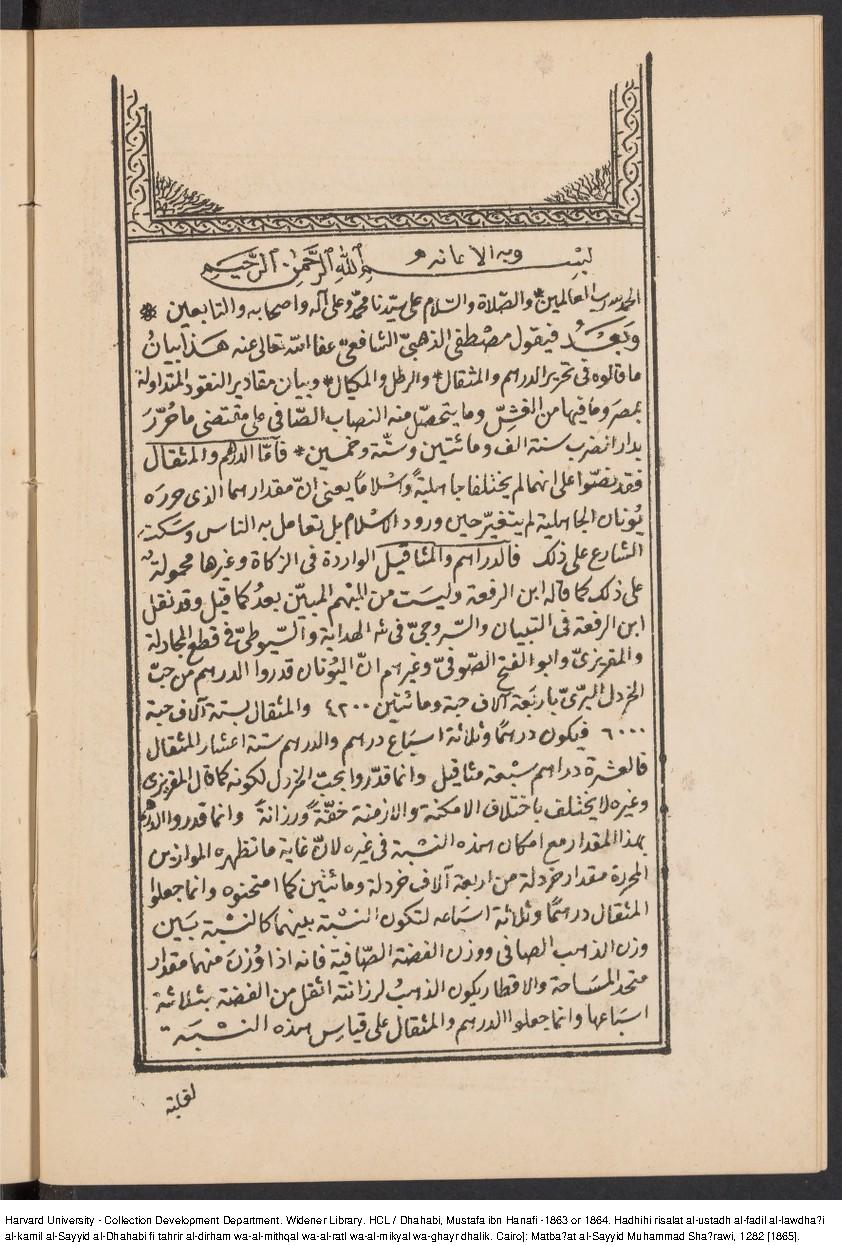 بسم الله الرحمن الرحيم وبه الاعانه
الحمد لله رب العالمين * والصلاة والسلام على سيدنا محمد وعلى آله واصحابه والتابعين *
وبعد فيقول مصطفى الذهبى الشافعى عفا الله تعالى عنه هذا بيان
ما قالوه فى تحرير الدرهم والمثقال * والرطل والمكيال * وبيان مقادير النقود المتداولة
بمصر وما فيها من الغش وما يتحصل منه النصاب الصافى على مقتضى ما حرر
بدار الضرب سنة الف ومائتين وستة وخمسين * فاما الدرهم والمثقال
فقد نصوا على انهما لم يختلفا جاهلية واسلاما يعنى ان مقدارهما الذى حرره
يونان الجاهلية لم يتغير حين ورود الاسلام بل تعامل به الناس وسكت
الشارع على ذلك فالدراهم والمثاقيل الواردة فى الزكاة وغيرها محمولة
على ذلك كما قاله ابن الرفعة وليست من المبهم المبين بعد كما قيل وقد نقل
ابن الرفعة فى التبيان والسروجى فى شه الهداية والسيوطى فى قطع المجادلة
والمقريزى وابو الفتح الصوفى وغيرهم ان اليونان قدروا الدرهم من حب
الخردل البرى باربعة آلاف حبة ومائتين ٤٢٠٠ والمثقال بستة آلاف حبة
٦٠٠٠ فيكون درهما وثلاثة اسباع درهم والدرهم ستة اعشار المثقال
فالعشرة دراهم سبعة مثاقيل وانما قدروا بحب الخردل لكونه كما قال المقريزى
وغيره لا يختلف باختلاف الامكنة والازمنة خفة ورزانة وانما قدروا الدرهم
بهذا المقدار مع امكان هذه النسبة فى غيره لان غاية ما تظهره الموازين
المحررة مقدار خردلة من اربعة آلاف خردلة ومائتين كما امتحنوه وانما جعلوا
المثقال درهما وثلاثة اسباعه لتكون النسبة بينهما كالنسبة بين
وزن الذهب الصافى ووزن الفضة الصافية فانه اذا وزن منهما مقدار
متحد المساحة والاقطار يكون الذهب لرزانته اثقل من الفضة بثلاثة
اسباعها وانما جعلوا الدرهم والمثقال على قياس هذه النسبة
لقلبة
Harvard University - Collection Development Department. Widener Library. HCL / Dhahabi, Mustafa ibn Hanafi -1863 or 1864. Hadhihi risalat al-ustadh al-fadil al-lawdha?i
al-kamil al-Sayyid al-Dhahabi fi tahrir al-dirham wa-al-mithqal wa-al-ratl wa-al-mikyal wa-ghayr dhalik. Cairo]: Matba?at al-Sayyid Muhammad Sha?rawi, 1282 [1865].